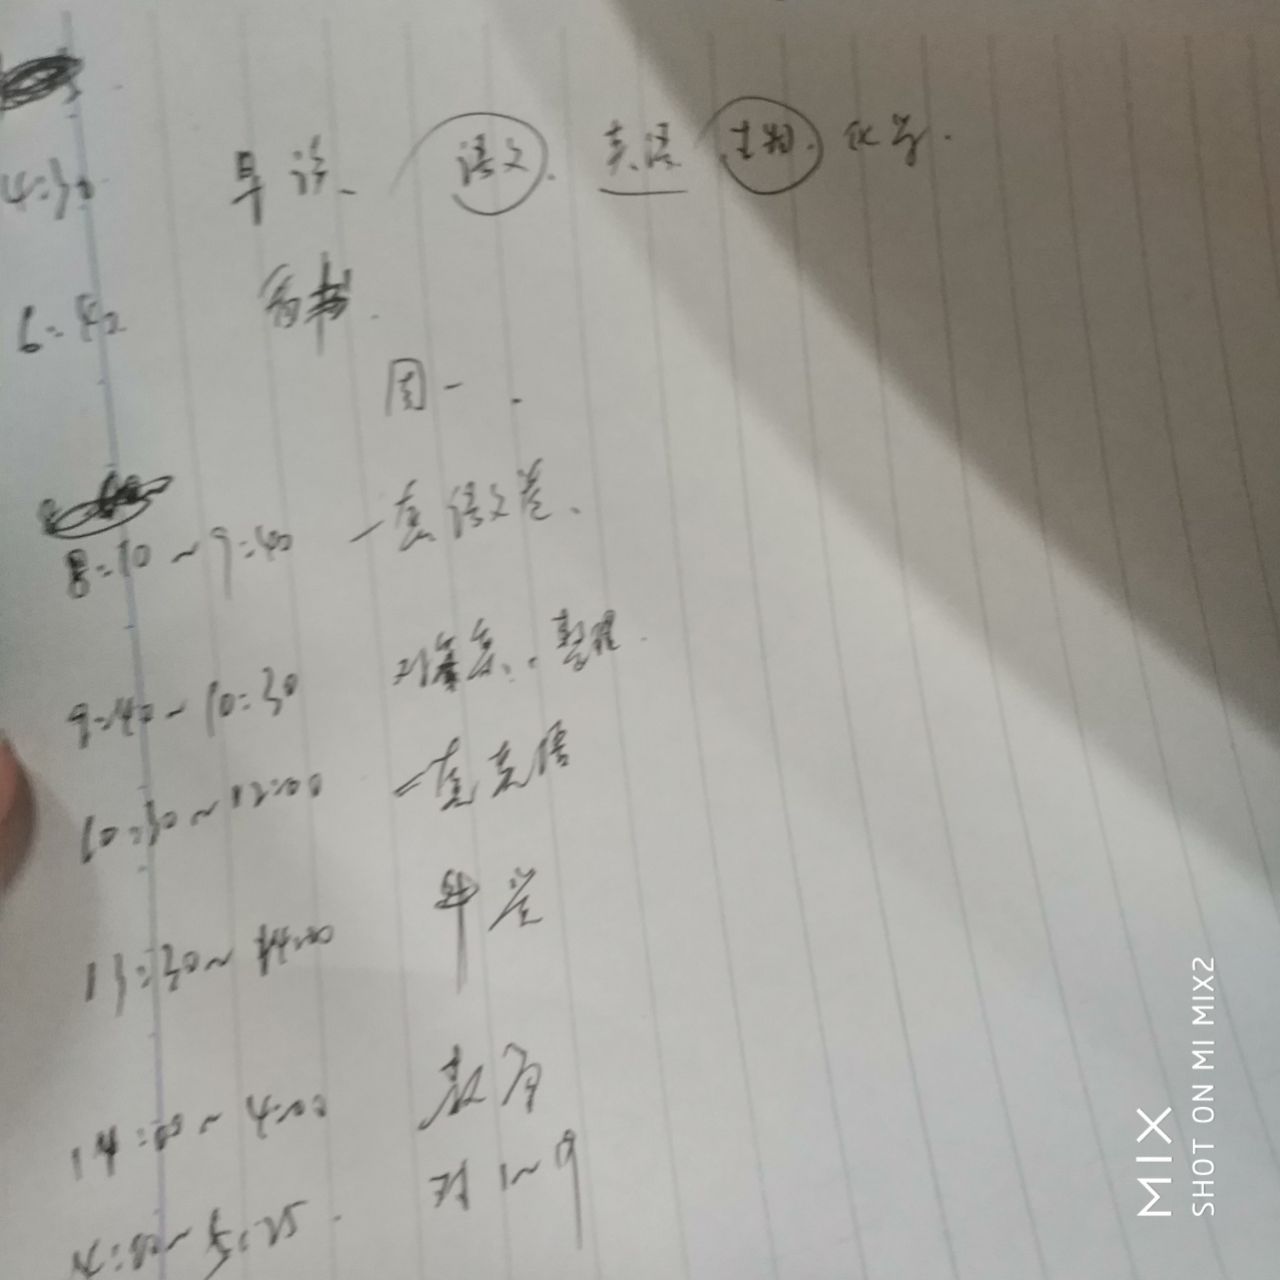 4:30 早读、 语文. 英语 生物. 化学.
6:40 看书.
周一.
8:10~9:40 一套语文卷、
9:40~10:30 对答案、. 整理.
10:30~12:00 一套英语
13:30~14:00 午觉
14:00~4:00
4:00~5:25. 对
MIX
SHOT ON MI MIX2